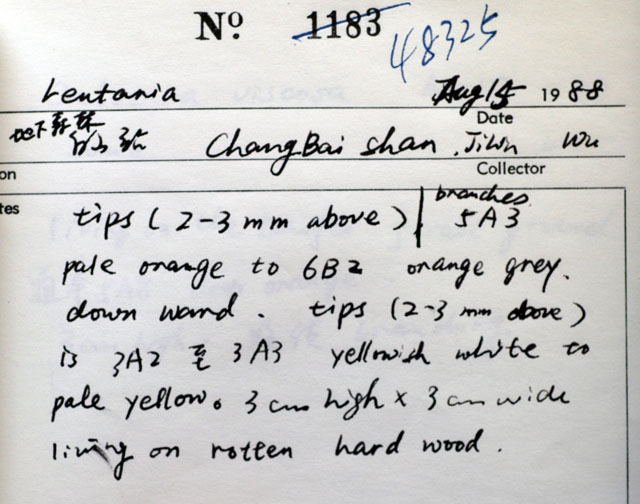 Nº 1183 48325
Lentaria Aug 15 1988
Date
地下森林 ChangBai shan. Jilin Wu
on Collector
tes tips (2-3 mm above) | branches 5A3
pale orange to 6B2 orange grey.
down ward. tips (2-3 mm above)
is 3A2 至 3A3 yellowish white to
pale yellow。 3 cm high × 3 cm wide
living on rotten hard wood.